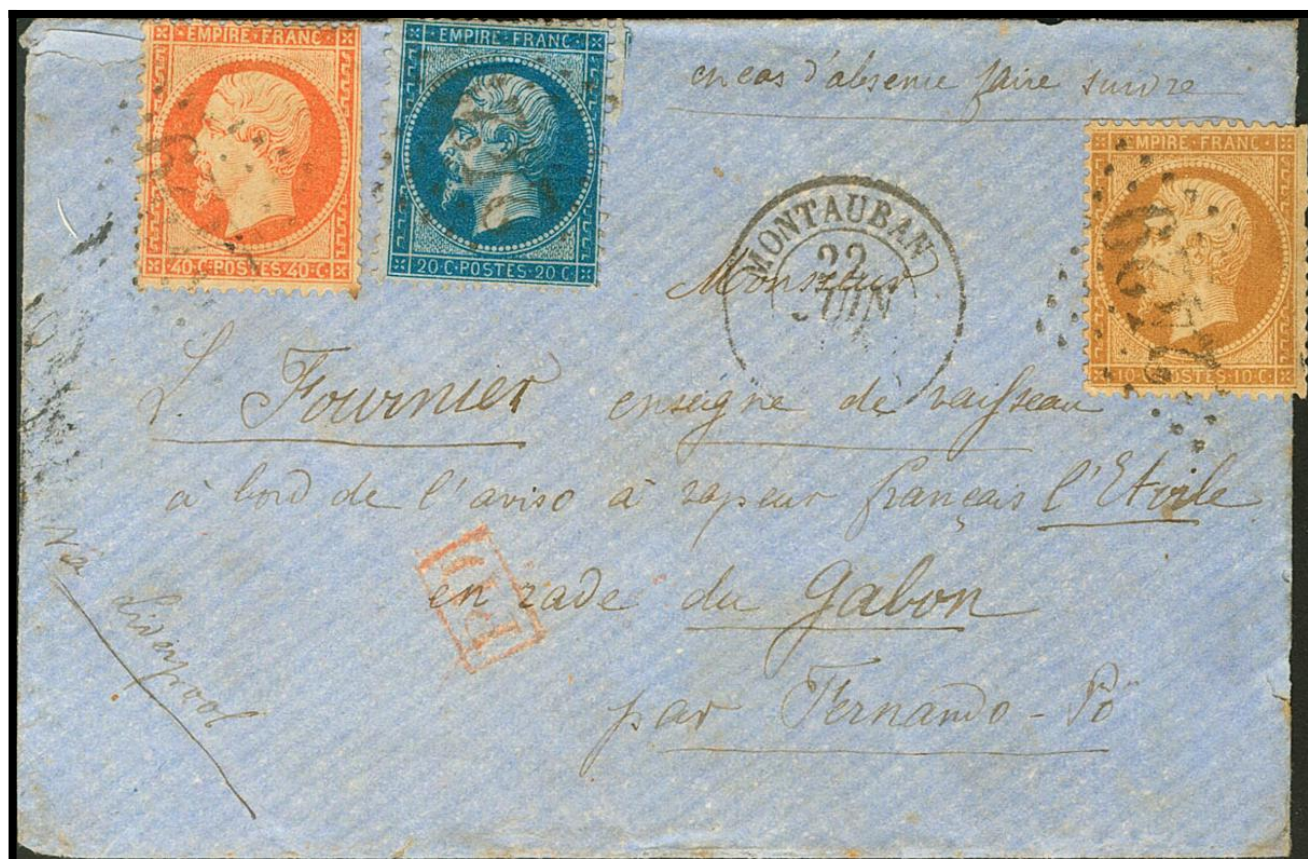 EMPIRE · FRANC
40 · C · POSTES · 40 · C
EMPIRE · FRANC
20 · C · POSTES · 20 · C
en cas d'absence faire suivre
EMPIRE · FRANC
10 · C · POSTES · 10 · C
MONTAUBAN
22
JUIN
Monsieur
L. Fournier enseigne de vaisseau
à bord de l'aviso à vapeur français l'Etoile
en rade du Gabon
par Fernando-Pô
Via
Liverpool